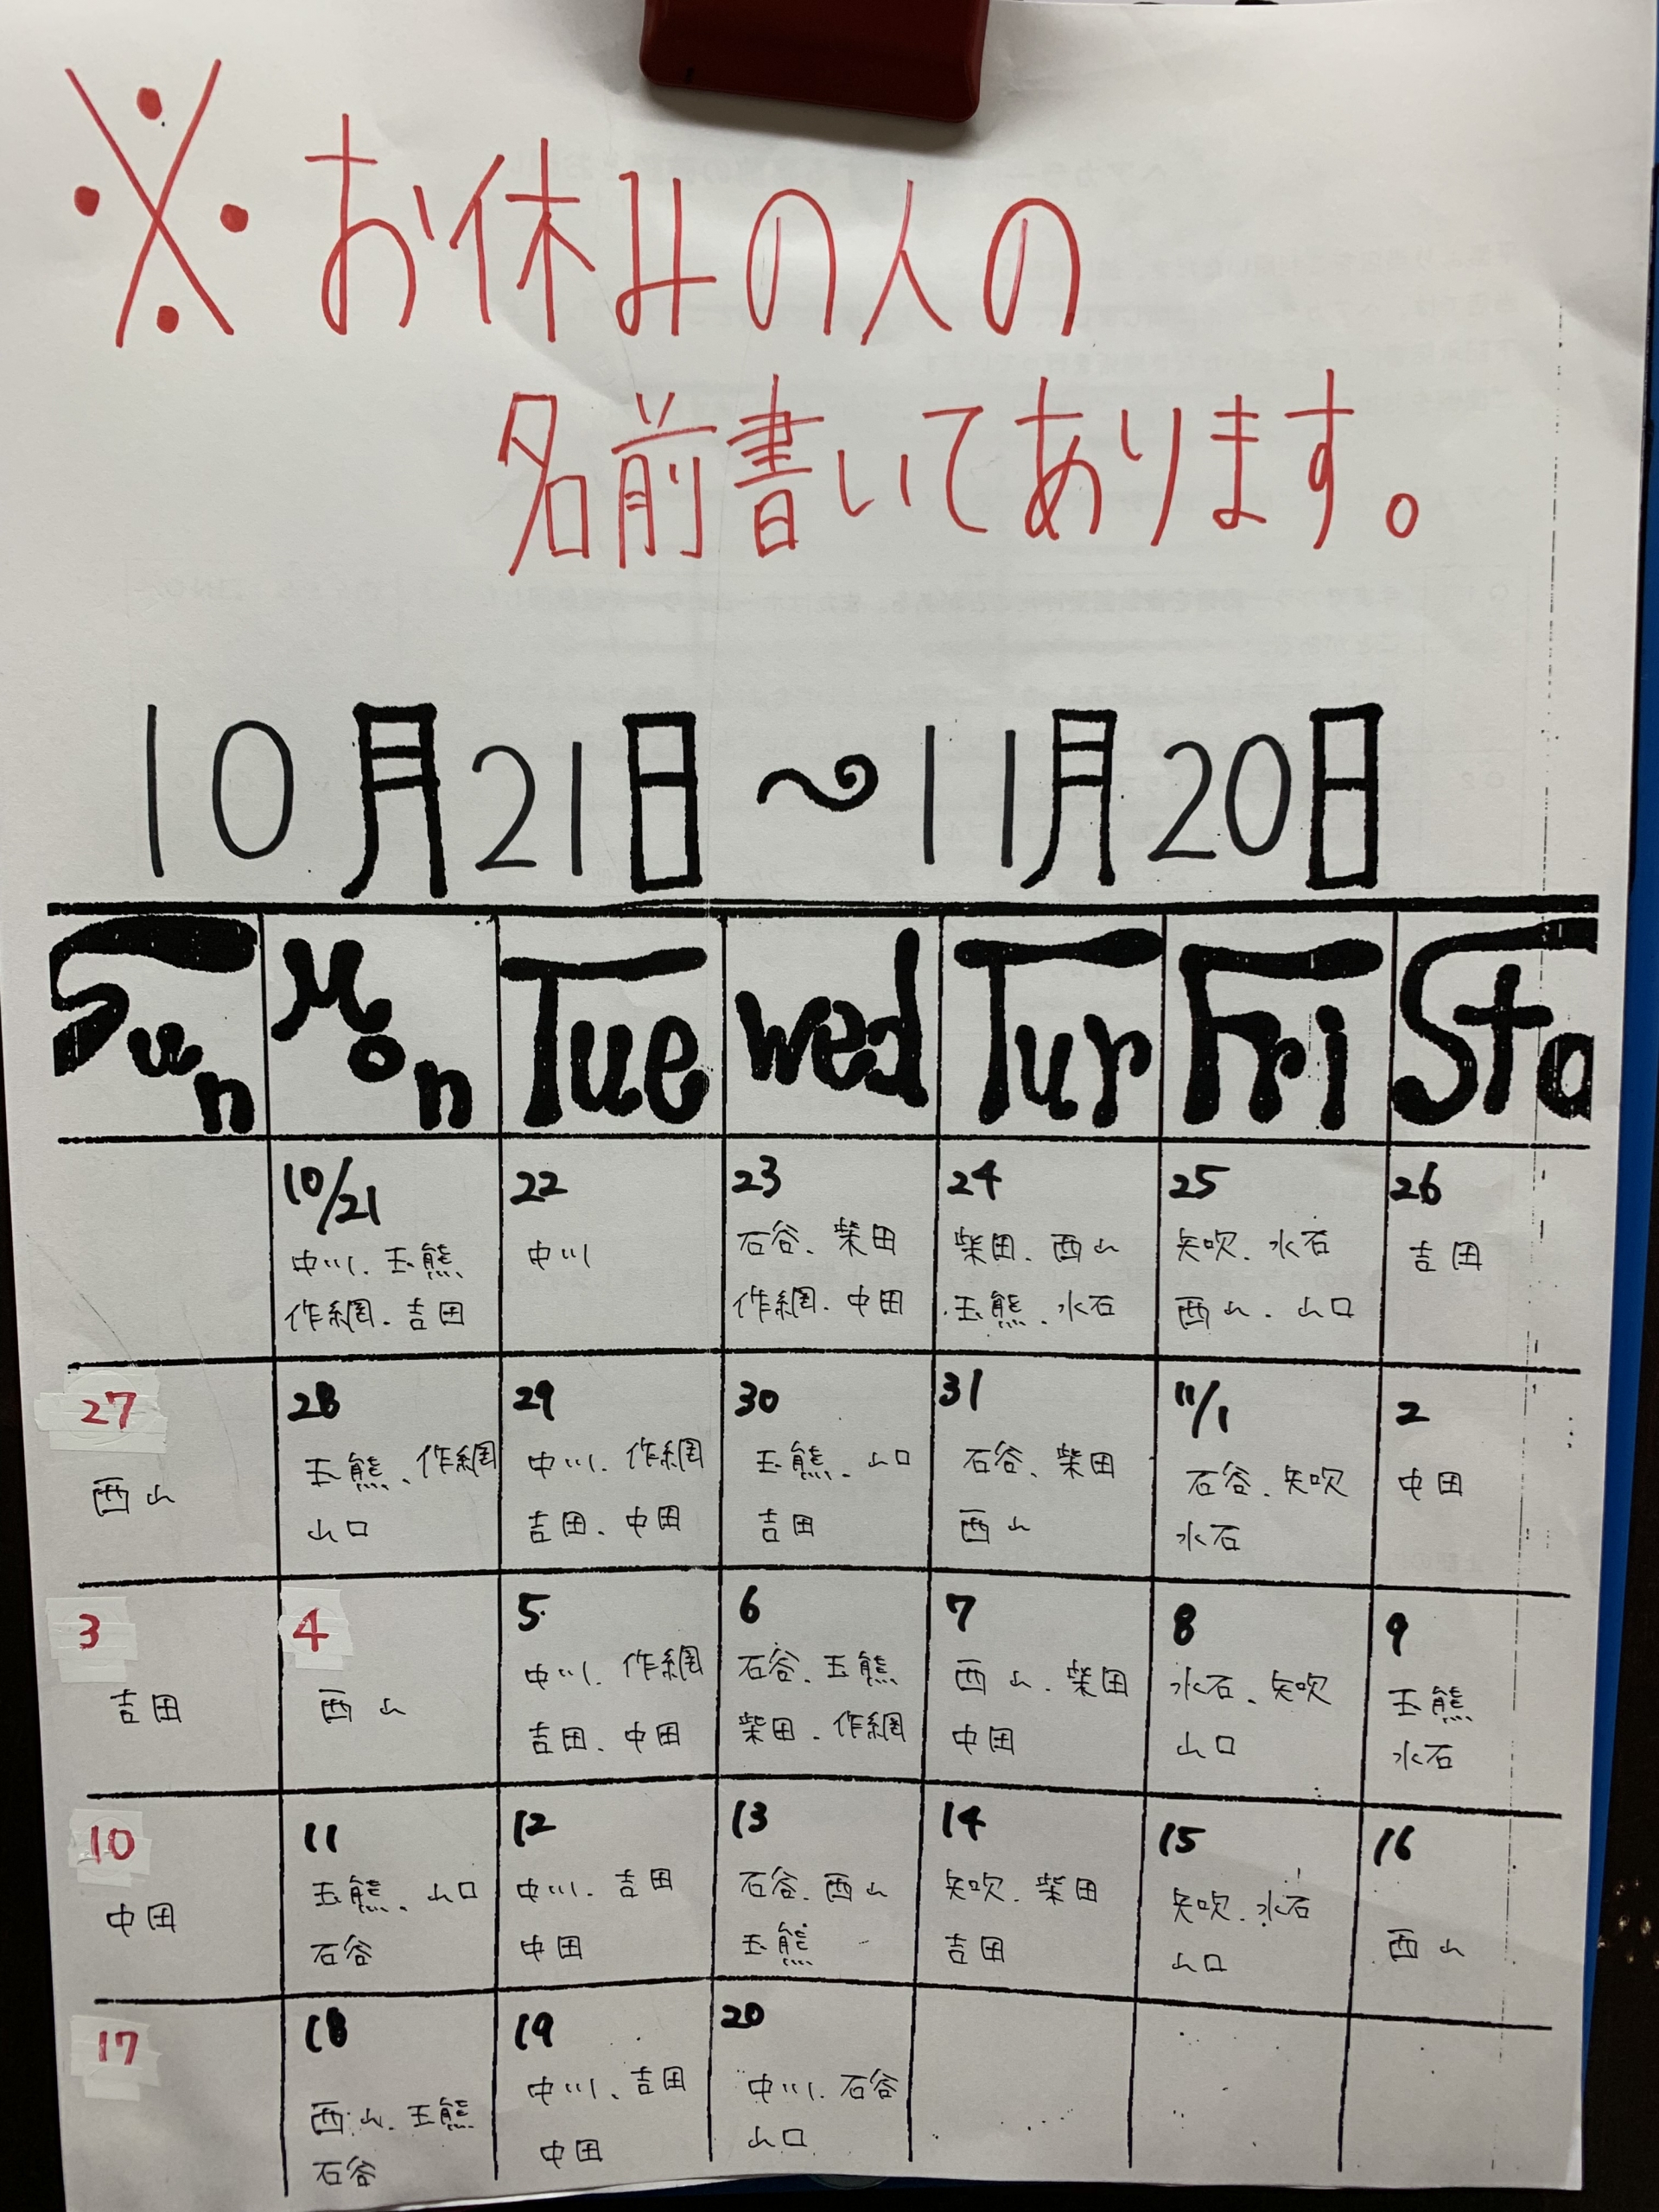 ※お休みの人の
名前書いてあります。
10月21日～11月20日
Sun Mon Tue Wed Tur Fri Sta
10/21
中川、玉熊
作網、吉田
22
中川
23
石谷、柴田
作網、中田
24
柴田、西山
玉熊、水石
25
矢吹、水石
西山、山口
26
吉田
27
西山
28
玉熊、作網
山口
29
中川、作網
吉田、中田
30
玉熊、山口
吉田
31
石谷、柴田
西山
11/1
石谷、矢吹
水石
2
中田
3
吉田
4
西山
5
中川、作網
吉田、中田
6
石谷、玉熊
柴田、作網
7
西山、柴田
中田
8
水石、矢吹
山口
9
玉熊
水石
10
中田
11
玉熊、山口
石谷
12
中川、吉田
中田
13
石谷、西山
玉熊
14
矢吹、柴田
吉田
15
矢吹、水石
山口
16
西山
17
18
西山、玉熊
石谷
19
中川、吉田
中田
20
中川、石谷
山口